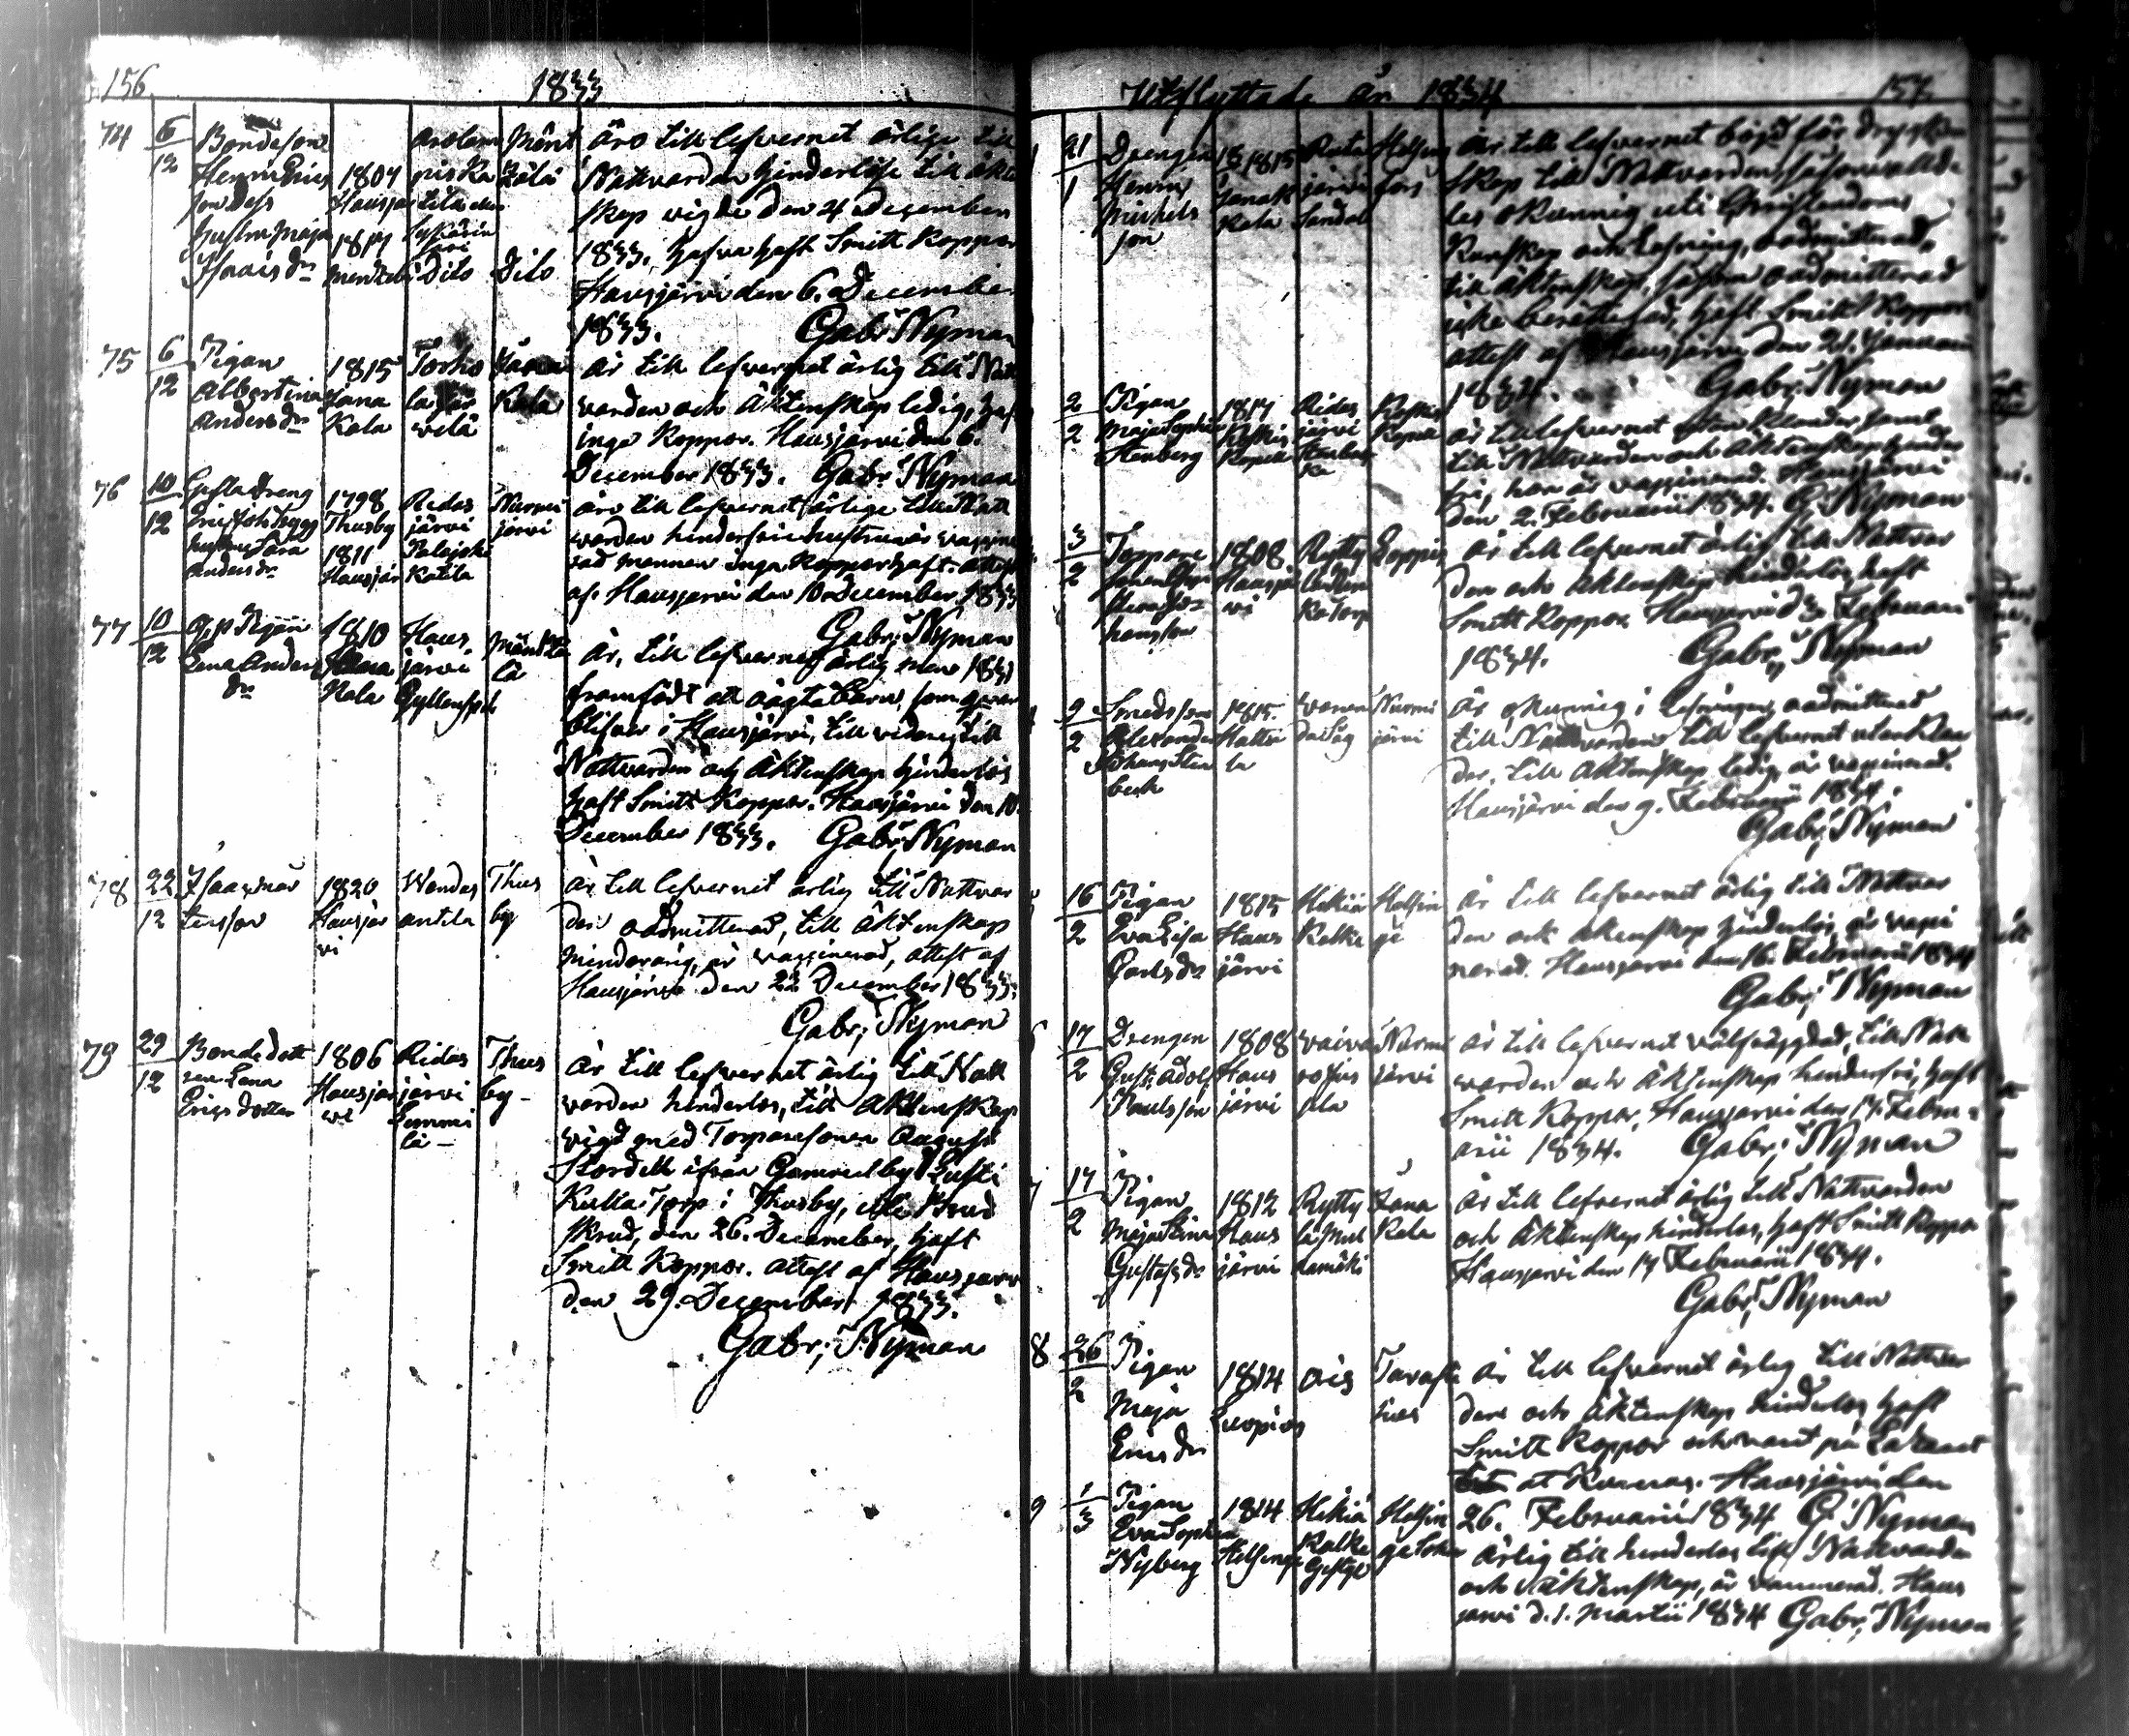 156
1833
74 6/12 Bondeson
Henric Erics
son Dess
hustru Maja
Isaacs dr
1807
Hausjär
1817
Mentzelä
Dito
Dito
äro till lefvernet ärlige till
Nattvarden hinderlöse till äkten
skap vigde den 4 december
1833, hafva haft Smitt Koppor
Hausjärvi den 6. December
1833. Gabr: Nyman
75 6/12 Pigan
Albertina
Anders dr
1815
Jana
Kala
Torho
la
är till lefvernet ärlig till Natt
varden och Äktenskap ledig, haft
inga Koppor. Hausjärvi den 6.
December 1833. Gabr: Nyman
76 10/12
hustru Sara
Anders dr
1798
Thusby
1811
Hausjär
Ridas
järvi
Palojoki
Katila
Nurmi
järvi
äro till lefvernet ärlige till Natt
varden hinderfrie hustrun är vaccine
rad mannen inga Koppor haft. attest
af. Hausjärvi den 10 December 1833
Gabr: Nyman
77 10/12 Pigan
Lena Anders
dr
1810
Jana
Kala
Haus
järvi
är, till lefvernet ärlig men 1831
framfödt ett oägta Barn, som qvar
blifver i Hausjärvi, till videre till
Nattvarden och Äktenskap hinderlös
haft Smitt Koppor. Hausjärvi den 10
December 1833. Gabr: Nyman
78 22/12 Isaac Mår
tensson
1820
Hausjär
vi
Wandas
antila
Thus
by
är till lefvernet ärlig till Nattvar
den oadmitterad, till Äktenskap
minderårig, är vaccinerad, attest af
Hausjärvi den 22 December 1833.
Gabr: Nyman
79 29/12 Bondedott
ren Lena
Erics dotter
1806
Hausjär
vi
Ridas
järvi
Thus
by
är till lefvernet ärlig till Natt
varden hinderlös, till Äktenskap
vigd med Torparesonen August
ifrån Gammelby
Kulla Torp i Thusby,
skrud, den 26. December, haft
Smitt Koppor. attest af Hausjärvi
den 29. December 1833.
Gabr: Nyman
Utflyttade År 1834
157.
1 21/1 Drengen
Henric
Michels
son
1815
Janak
kala
järvi
Sandal
Helsing
fors
är till lefvernet böjd för dryckes
skap till Nattvarden
les okunnig uti Christendoms
Kunskap och Läsning, oadmitterad,
till Äktenskap, såsom oadmitterad
icke berättigad, haft Smitt Koppor
attest af Hausjärvi den 21. Januari
1834. Gabr: Nyman
2/2 Pigan
Maja Sophia
Stenberg
1817
Ridas
järvi
är till lefvernet utan klander samt
till Nattvarden och Äktenskap hinder
fri, hon är vaccinerad. Hausjärvi
den 2. Februarii 1834. G. Nyman
3/2 Torpare
1808
Hausjär
vi
Rytty
Loppis
är till lefvernet ärlig till Nattvar
den och Äktenskap hinderlös, haft
Smitt Koppor Hausjärvi d. 3. Februari
1834. Gabr: Nyman
9/2 Smedsson
Alexander
Johans Sten
beck
1815.
Hattu
la
Nurmi
järvi
är okunnig i Läsningen, oadmitterad
till Nattvarden till lefvernet utan klan
der, till Äktenskap ledig är vaccinerad.
Hausjärvi den 9. Februarii 1834.
Gabr: Nyman
16/2 Pigan
Eva Lisa
Carls dr
1815
Haus
järvi
Hikiä
Kalke
Helsin
ge
är till lefvernet ärlig till Nattvar
den och Äktenskap hinderlös, är vacci
nerad. Hausjärvi den 16. Februarii 1834
Gabr: Nyman
6 17/2 Drengen
Gust. Adolf
Paulsson
1808
Haus
järvi
Nurmi
järvi
är till lefvernet välfrägdad, till Natt
varden och Äktenskap hinderfri, haft
Smitt Koppor, Hausjärvi den 17. Febru
arii 1834. Gabr: Nyman
7 17/2 Pigan
Maja Stina
Gustafs dr
1812
Haus
järvi
Rytty
Jana
Kala
är till lefvernet ärlig till Nattvarden
och Äktenskap hinderlös, haft Smitt Koppor
Hausjärvi den 17 Februarii 1834.
Gabr: Nyman
8 26/2 Pigan
Maja
Erics dr
1814
Oris
Tavaste
hus
är till lefvernet ärlig till Nattvar
den och Äktenskap hinderlös haft
Smitt Koppor och varit på Lazaret
tet at Kureras. Hausjärvi den
26. Februarii 1834 G: Nyman
9 1/3 Pigan
Eva Sophia
Nyberg
1814
Helsinge
Hikiä
Kalke
Helsin
ge Sokn
Ärlig till hinderlös till Nattvarden
och Äktenskap, är vaccinerad. Haus
järvi d. 1. Martii 1834 Gabr: Nyman